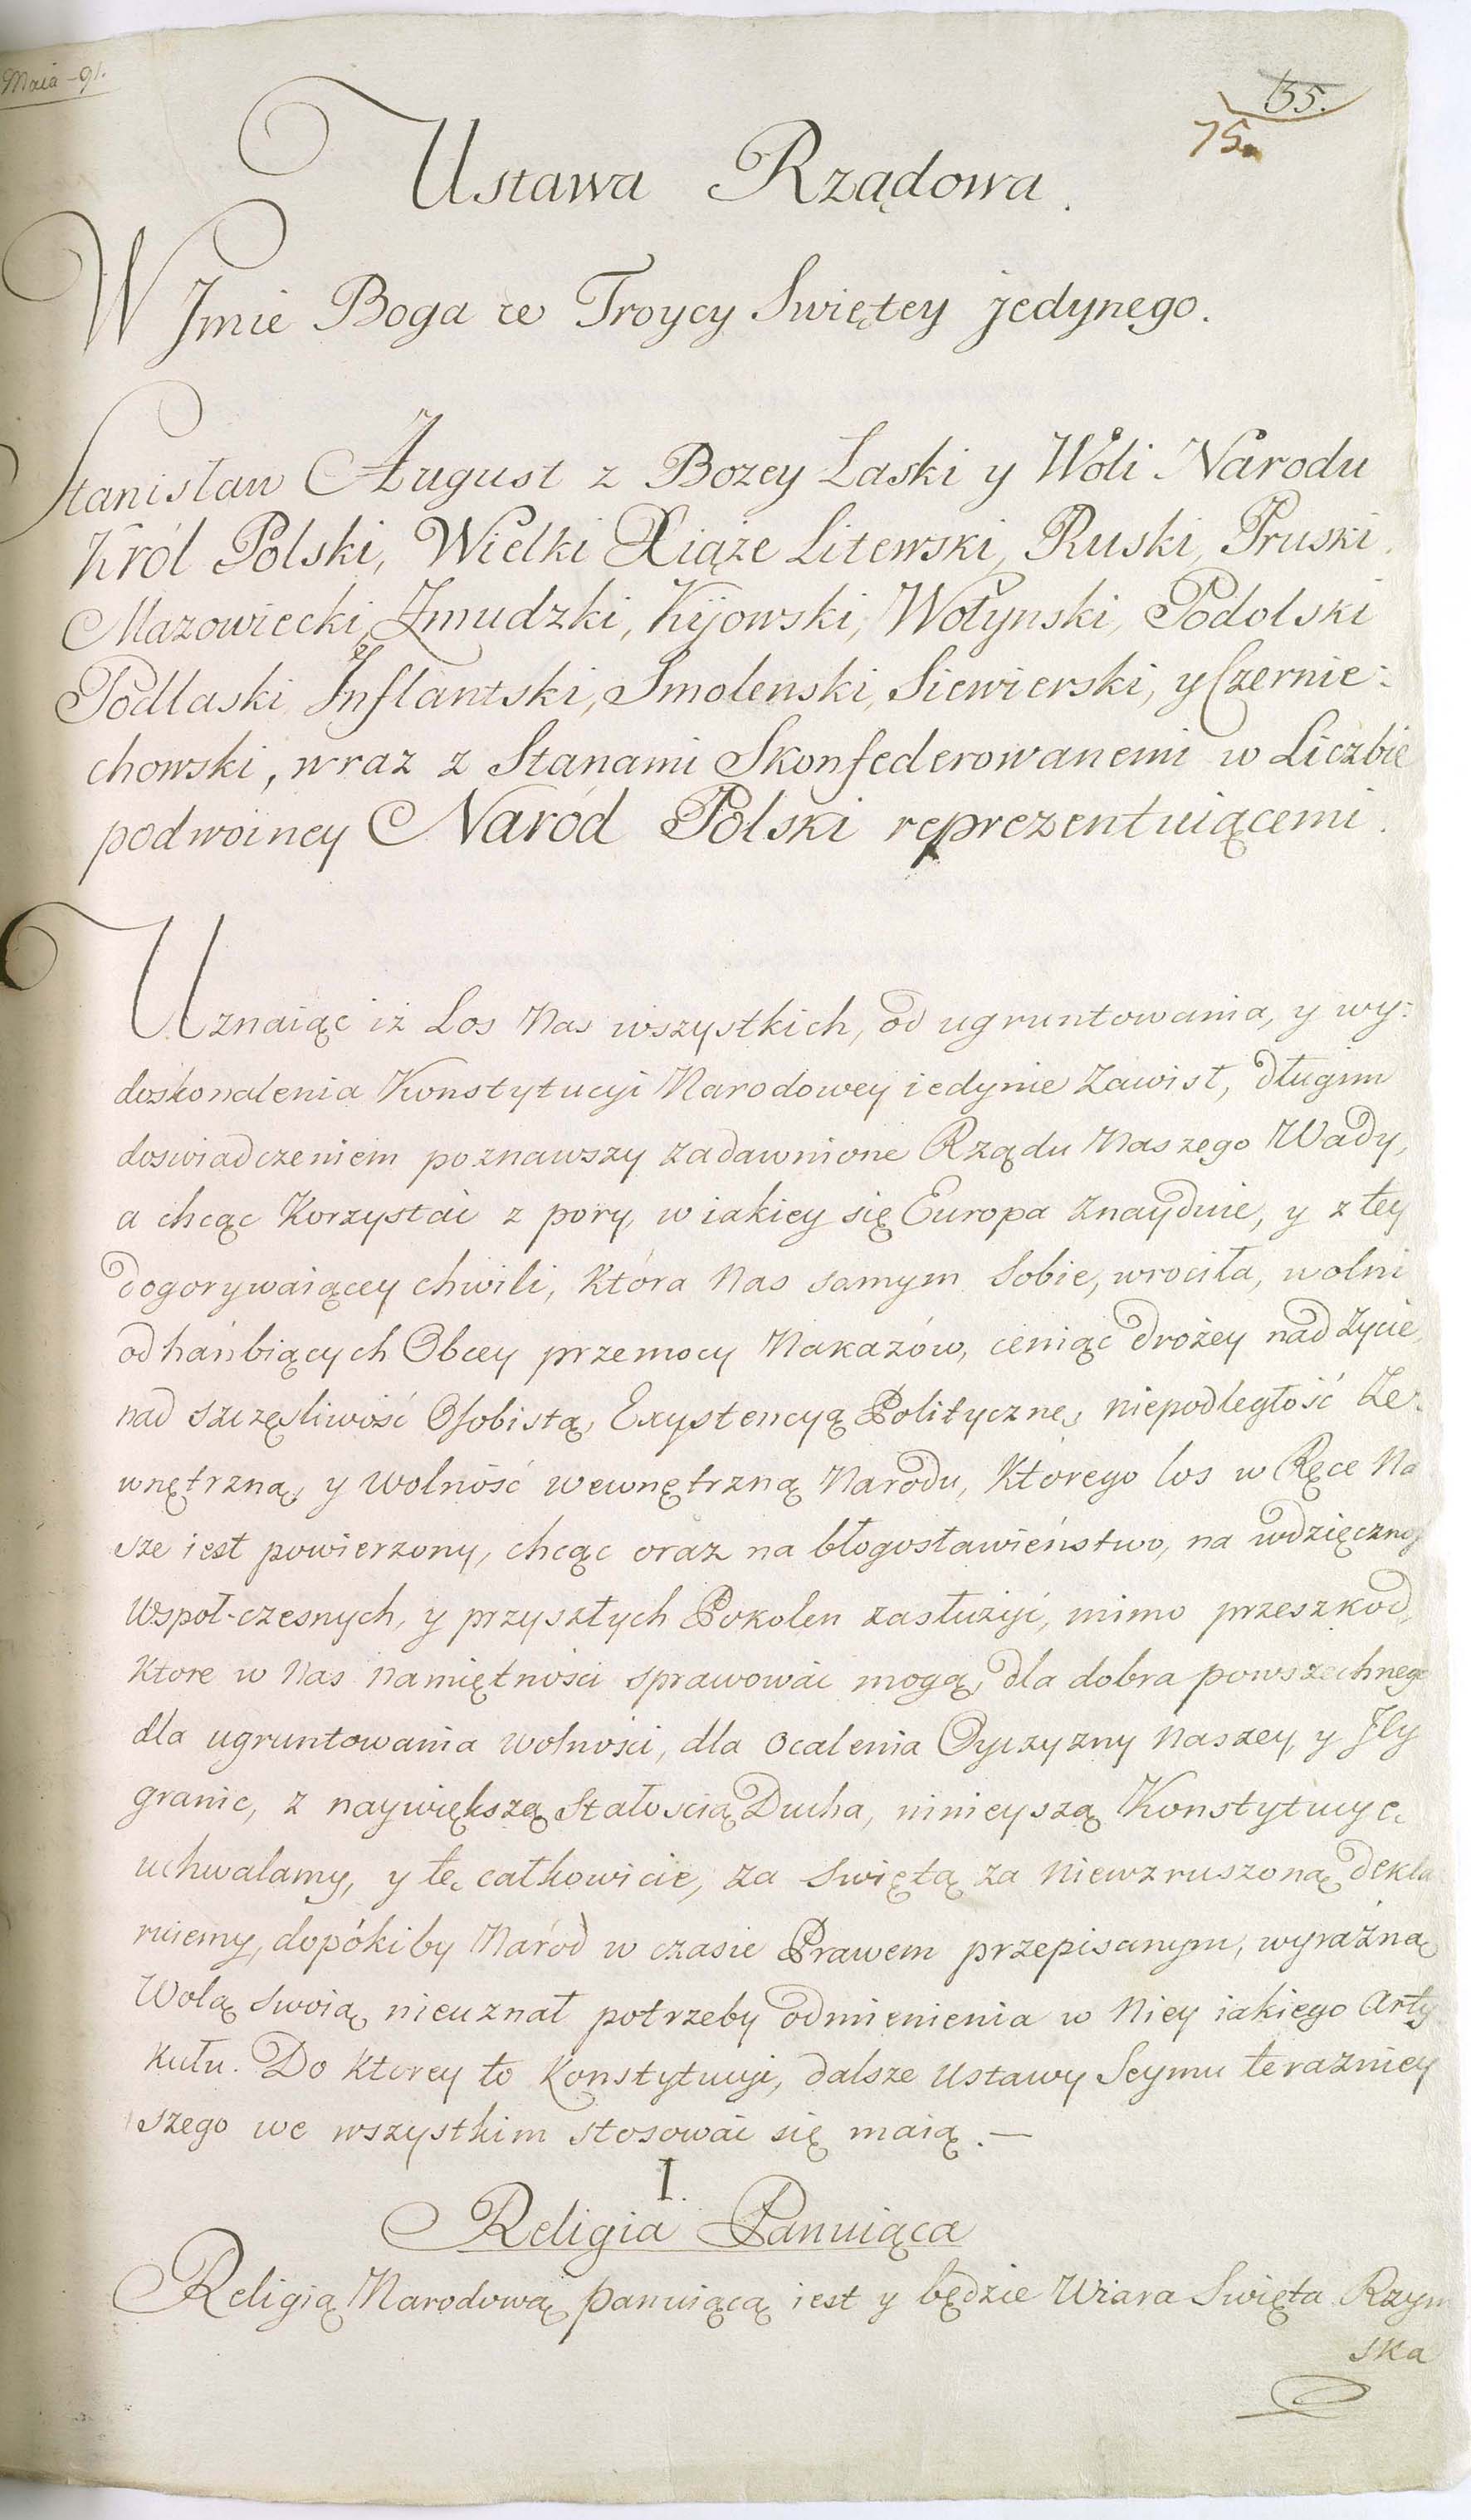 Maia - 91.
155.
75.
Ustawa Rządowa.
W Jmie Boga w Troycy Swiętey jedynego.
Stanisław August z Bozey Łaski y Woli Narodu
Król Polski, Wielki Xiąże Litewski, Ruski, Pruski,
Mazowiecki, Żmudzki, Kijowski, Wołynski, Podolski
Podlaski, Jnflantski, Smolenski, Siewierski, y Czernie-
chowski, wraz z Stanami Skonfederowanemi w Liczbie
podwoiney Naród Polski reprezentuiącemi.
Uznaiąc iż Los Nas wszystkich, od ugruntowania, y wy-
doskonalenia Konstytucyi Narodowey iedynie Zawisł, długim
doswiadczeniem poznawszy zadawnione Rządu Naszego Wady,
a chcąc Korzystać z pory, w iakiey się Europa znayduie, y z tey
dogorywaiącey chwili, która Nas samym Sobie, wrociła, wolni
od hańbiących Obcey przemocy Nakazów, ceniąc drożey nad życie,
nad szczęsliwość Osobistą, Exystencyą Polityczną, niepodległość Ze-
wnętrzną, y wolność wewnętrzną Narodu, Którego los w Ręce Na
sze iest powierzony, chcąc oraz na błogosławieństwo, na wdzięcznoś
Wspoł-czesnych, y przyszłych Pokolen zasłużyć, mimo przeszkod,
Ktore w Nas namiętności sprawować mogą, dla dobra powszechnego
dla ugruntowania wolności, dla Ocalenia Oyczyzny Naszey, y Jey
granic, z naywiększą Stałoscią Ducha, ninieyszą Konstytucyę
uchwalamy, y tę całkowicie, za Swiętą za Niewzruszoną dekla
ruiemy, dopókiby Naród w czasie Prawem przepisanym, wyraźną
Wolą swoią, nieuznał potrzeby odmienienia w Niey iakiego Arty
kułu. Do Ktorey to Konstytucyi, dalsze Ustawy Seymu teraźniey
szego we wszystkim stosować się maią. —
I.
Religia Panuiąca
Religią Narodową panuiącą iest y będzie Wiara Swięta Rzym
ska